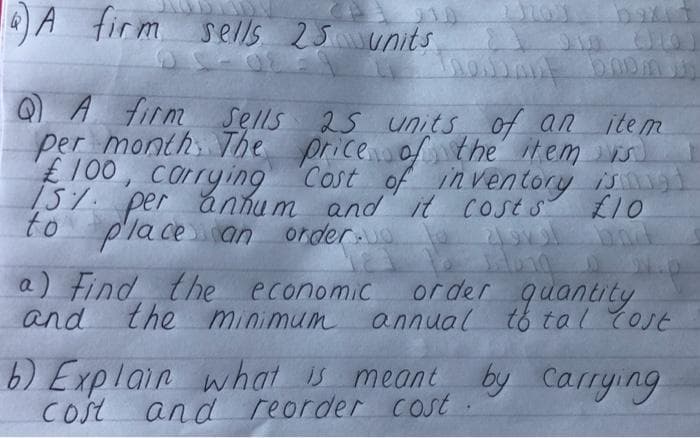 Q) A firm sells 25 units
Q) A firm sells 25 units of an item
per month. The price of the item is
£100, carrying cost of inventory is
15% per annum and it costs £10
to place an order.
a) Find the economic order quantity
and the minimum annual total cost
b) Explain what is meant by carrying
cost and reorder cost.